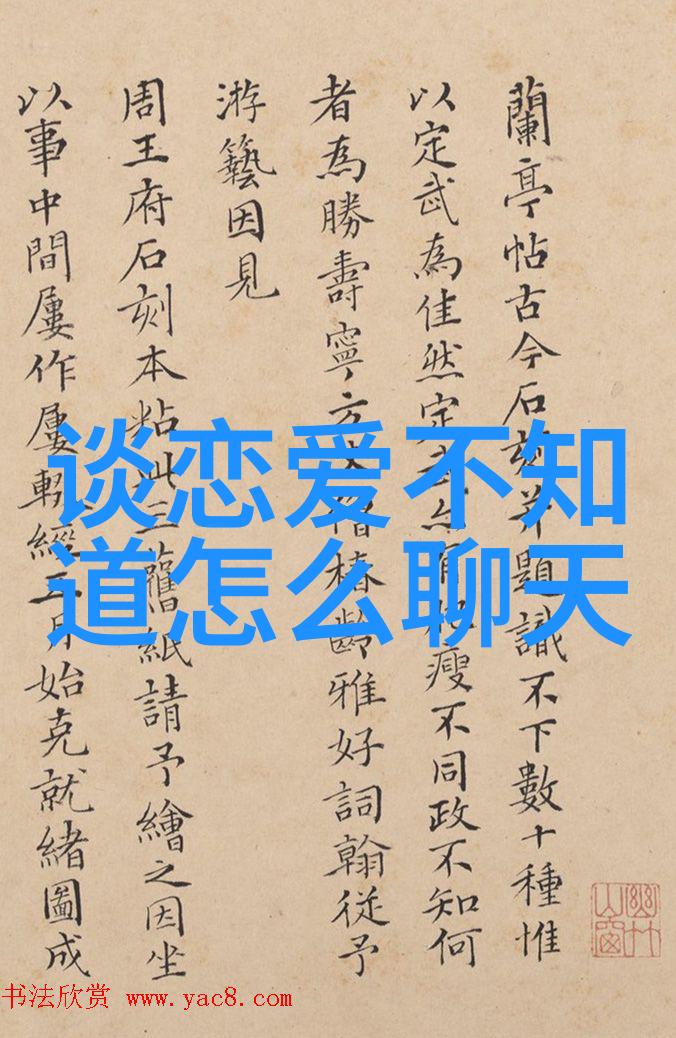 蘭亭帖古今石刻并題識不下數十種惟
以定武為佳然定武亦有肥瘦不同政不知何
者為勝壽寧方 椿齡雅好詞翰從予
游藝因見
周王府石刻本粘此三舊紙請予繪之因坐
以事中間屢作屢輟經五月始克就緒圖成
谈恋爱不知
道怎么聊天
书法欣赏 www.yac8.com